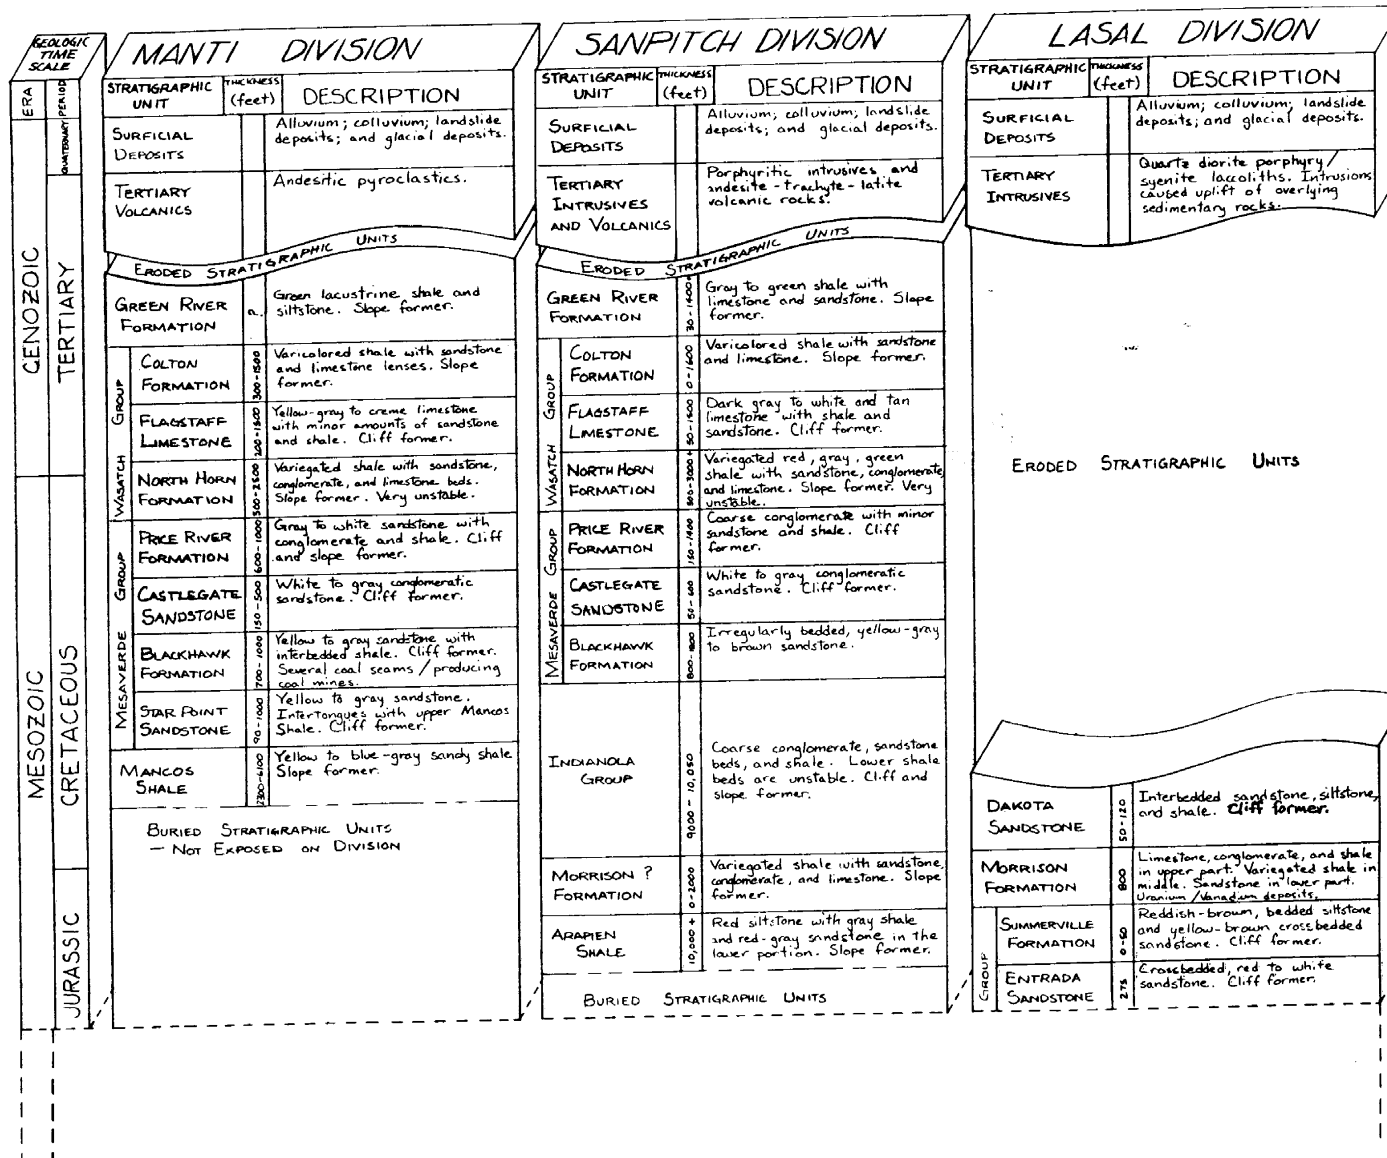 GEOLOGIC
TIME
SCALE
ERA
PERIOD
QUATERNARY
CENOZOIC
TERTIARY
MESOZOIC
CRETACEOUS
JURASSIC
MANTI DIVISION
STRATIGRAPHIC
UNIT
THICKNESS
(feet)
DESCRIPTION
SURFICIAL
DEPOSITS
Alluvium; colluvium; landslide
deposits; and glacial deposits.
TERTIARY
VOLCANICS
Andesitic pyroclastics.
ERODED STRATIGRAPHIC UNITS
GREEN RIVER
FORMATION
Green lacustrine shale and
siltstone. Slope former.
WASATCH GROUP
COLTON
FORMATION
300-1500
Varicolored shale with sandstone
and limestone lenses. Slope
former.
FLAGSTAFF
LIMESTONE
200-1500
Yellow-gray to creme limestone
with minor amounts of sandstone
and shale. Cliff former.
NORTH HORN
FORMATION
500-2500
Variegated shale with sandstone,
conglomerate, and limestone beds.
Slope former. Very unstable.
MESAVERDE GROUP
PRICE RIVER
FORMATION
600-1000
Gray to white sandstone with
conglomerate and shale. Cliff
and slope former.
CASTLEGATE
SANDSTONE
150-500
White to gray conglomeratic
sandstone. Cliff former.
BLACKHAWK
FORMATION
700-1000
Yellow to gray sandstone with
interbedded shale. Cliff former.
Several coal seams / producing
coal mines.
STAR POINT
SANDSTONE
90-1000
Yellow to gray sandstone.
Intertongues with upper Mancos
Shale. Cliff former.
MANCOS
SHALE
2300-6100
Yellow to blue-gray sandy shale
Slope former.
BURIED STRATIGRAPHIC UNITS
- NOT EXPOSED ON DIVISION
SANPITCH DIVISION
STRATIGRAPHIC
UNIT
THICKNESS
(feet)
DESCRIPTION
SURFICIAL
DEPOSITS
Alluvium; colluvium; landslide
deposits; and glacial deposits.
TERTIARY
INTRUSIVES
AND VOLCANICS
Porphyritic intrusives and
andesite-trachyte-latite
volcanic rocks.
ERODED STRATIGRAPHIC UNITS
GREEN RIVER
FORMATION
Gray to green shale with
limestone and sandstone. Slope
former.
WASATCH GROUP
COLTON
FORMATION
0-1600
Varicolored shale with sandstone
and limestone. Slope former.
FLAGSTAFF
LIMESTONE
50-1500
Dark gray to white and tan
limestone with shale and
sandstone. Cliff former.
NORTH HORN
FORMATION
500-3000+
Variegated red, gray, green
shale with sandstone, conglomerate,
and limestone. Slope former. Very
unstable.
MESAVERDE GROUP
PRICE RIVER
FORMATION
Coarse conglomerate with minor
sandstone and shale. Cliff
former.
CASTLEGATE
SANDSTONE
50-600
White to gray conglomeratic
sandstone. Cliff former.
BLACKHAWK
FORMATION
Irregularly bedded, yellow-gray
to brown sandstone.
INDIANOLA
GROUP
9000-10,050
Coarse conglomerate, sandstone
beds, and shale. Lower shale
beds are unstable. Cliff and
slope former.
MORRISON ?
FORMATION
0-2000
Variegated shale with sandstone,
conglomerate, and limestone. Slope
former.
ARAPIEN
SHALE
10,000+
Red siltstone with gray shale
and red-gray sandstone in the
lower portion. Slope former.
BURIED STRATIGRAPHIC UNITS
LASAL DIVISION
STRATIGRAPHIC
UNIT
THICKNESS
(feet)
DESCRIPTION
SURFICIAL
DEPOSITS
Alluvium; colluvium; landslide
deposits; and glacial deposits.
TERTIARY
INTRUSIVES
Quartz diorite porphyry/
syenite laccoliths. Intrusions
caused uplift of overlying
sedimentary rocks.
ERODED STRATIGRAPHIC UNITS
DAKOTA
SANDSTONE
50-120
Interbedded sandstone, siltstone,
and shale. Cliff former.
MORRISON
FORMATION
800
Limestone, conglomerate, and shale
in upper part. Variegated shale in
middle. Sandstone in lower part.
Uranium/Vanadium deposits.
GROUP
SUMMERVILLE
FORMATION
0-50
Reddish-brown, bedded siltstone
and yellow-brown crossbedded
sandstone. Cliff former.
ENTRADA
SANDSTONE
275
Crossbedded, red to white
sandstone. Cliff former.